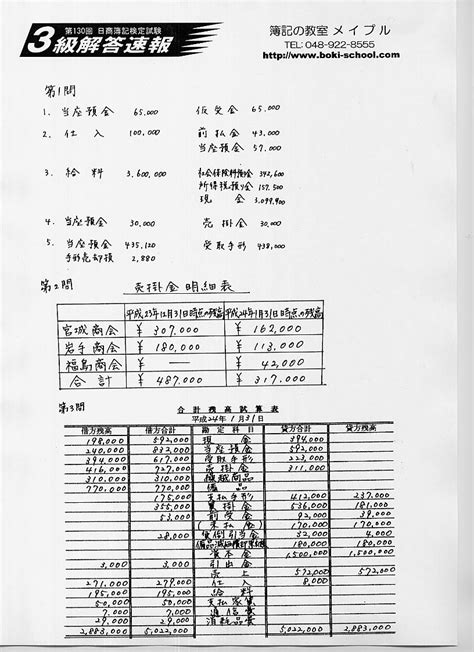 第130回 日商簿記検定試験
3級解答速報
簿記の教室 メイプル
TEL: 048-922-8555
http://www.boki-school.com/
第1問
1. 当座預金 65,000 仮受金 65,000
2. 仕入 100,000 前払金 43,000
当座預金 57,000
3. 給料 3,600,000 社会保険料預り金 342,600
所得税預り金 157,500
現金 3,099,900
4. 当座預金 30,000 売掛金 30,000
5. 当座預金 435,120 受取手形 438,000
手形売却損 2,880
第2問 売掛金明細表
平成23年12月31日時点の残高 平成24年1月31日時点の残高
宮城商会 ¥ 307,000 ¥ 162,000
岩手商会 ¥ 180,000 ¥ 113,000
福島商会 ¥ — ¥ 42,000
合計 ¥ 487,000 ¥ 317,000
第3問 合計残高試算表
平成24年1月31日
借方残高 借方合計 勘定科目 貸方合計 貸方残高
198,000 592,000 現金 394,000
240,000 832,000 当座預金 592,000
394,000 617,000 受取手形 223,000
416,000 727,000 売掛金 311,000
310,000 310,000 繰越商品
770,000 770,000 備品
175,000 支払手形 412,000 237,000
355,000 買掛金 536,000 181,000
53,000 前受金 92,000 39,000
(未払金) 170,000 170,000
28,000 貸倒引当金 32,000 4,000
180,000 180,000
資本金 1,500,000 1,500,000
3,000 3,000 引出金
売上 572,000 572,000
271,000 279,000 仕入 8,000
195,000 195,000 給料
50,000 50,000 支払家賃
7,000 7,000 通信費
29,000 29,000 消耗品費
2,883,000 5,022,000 5,022,000 2,883,000